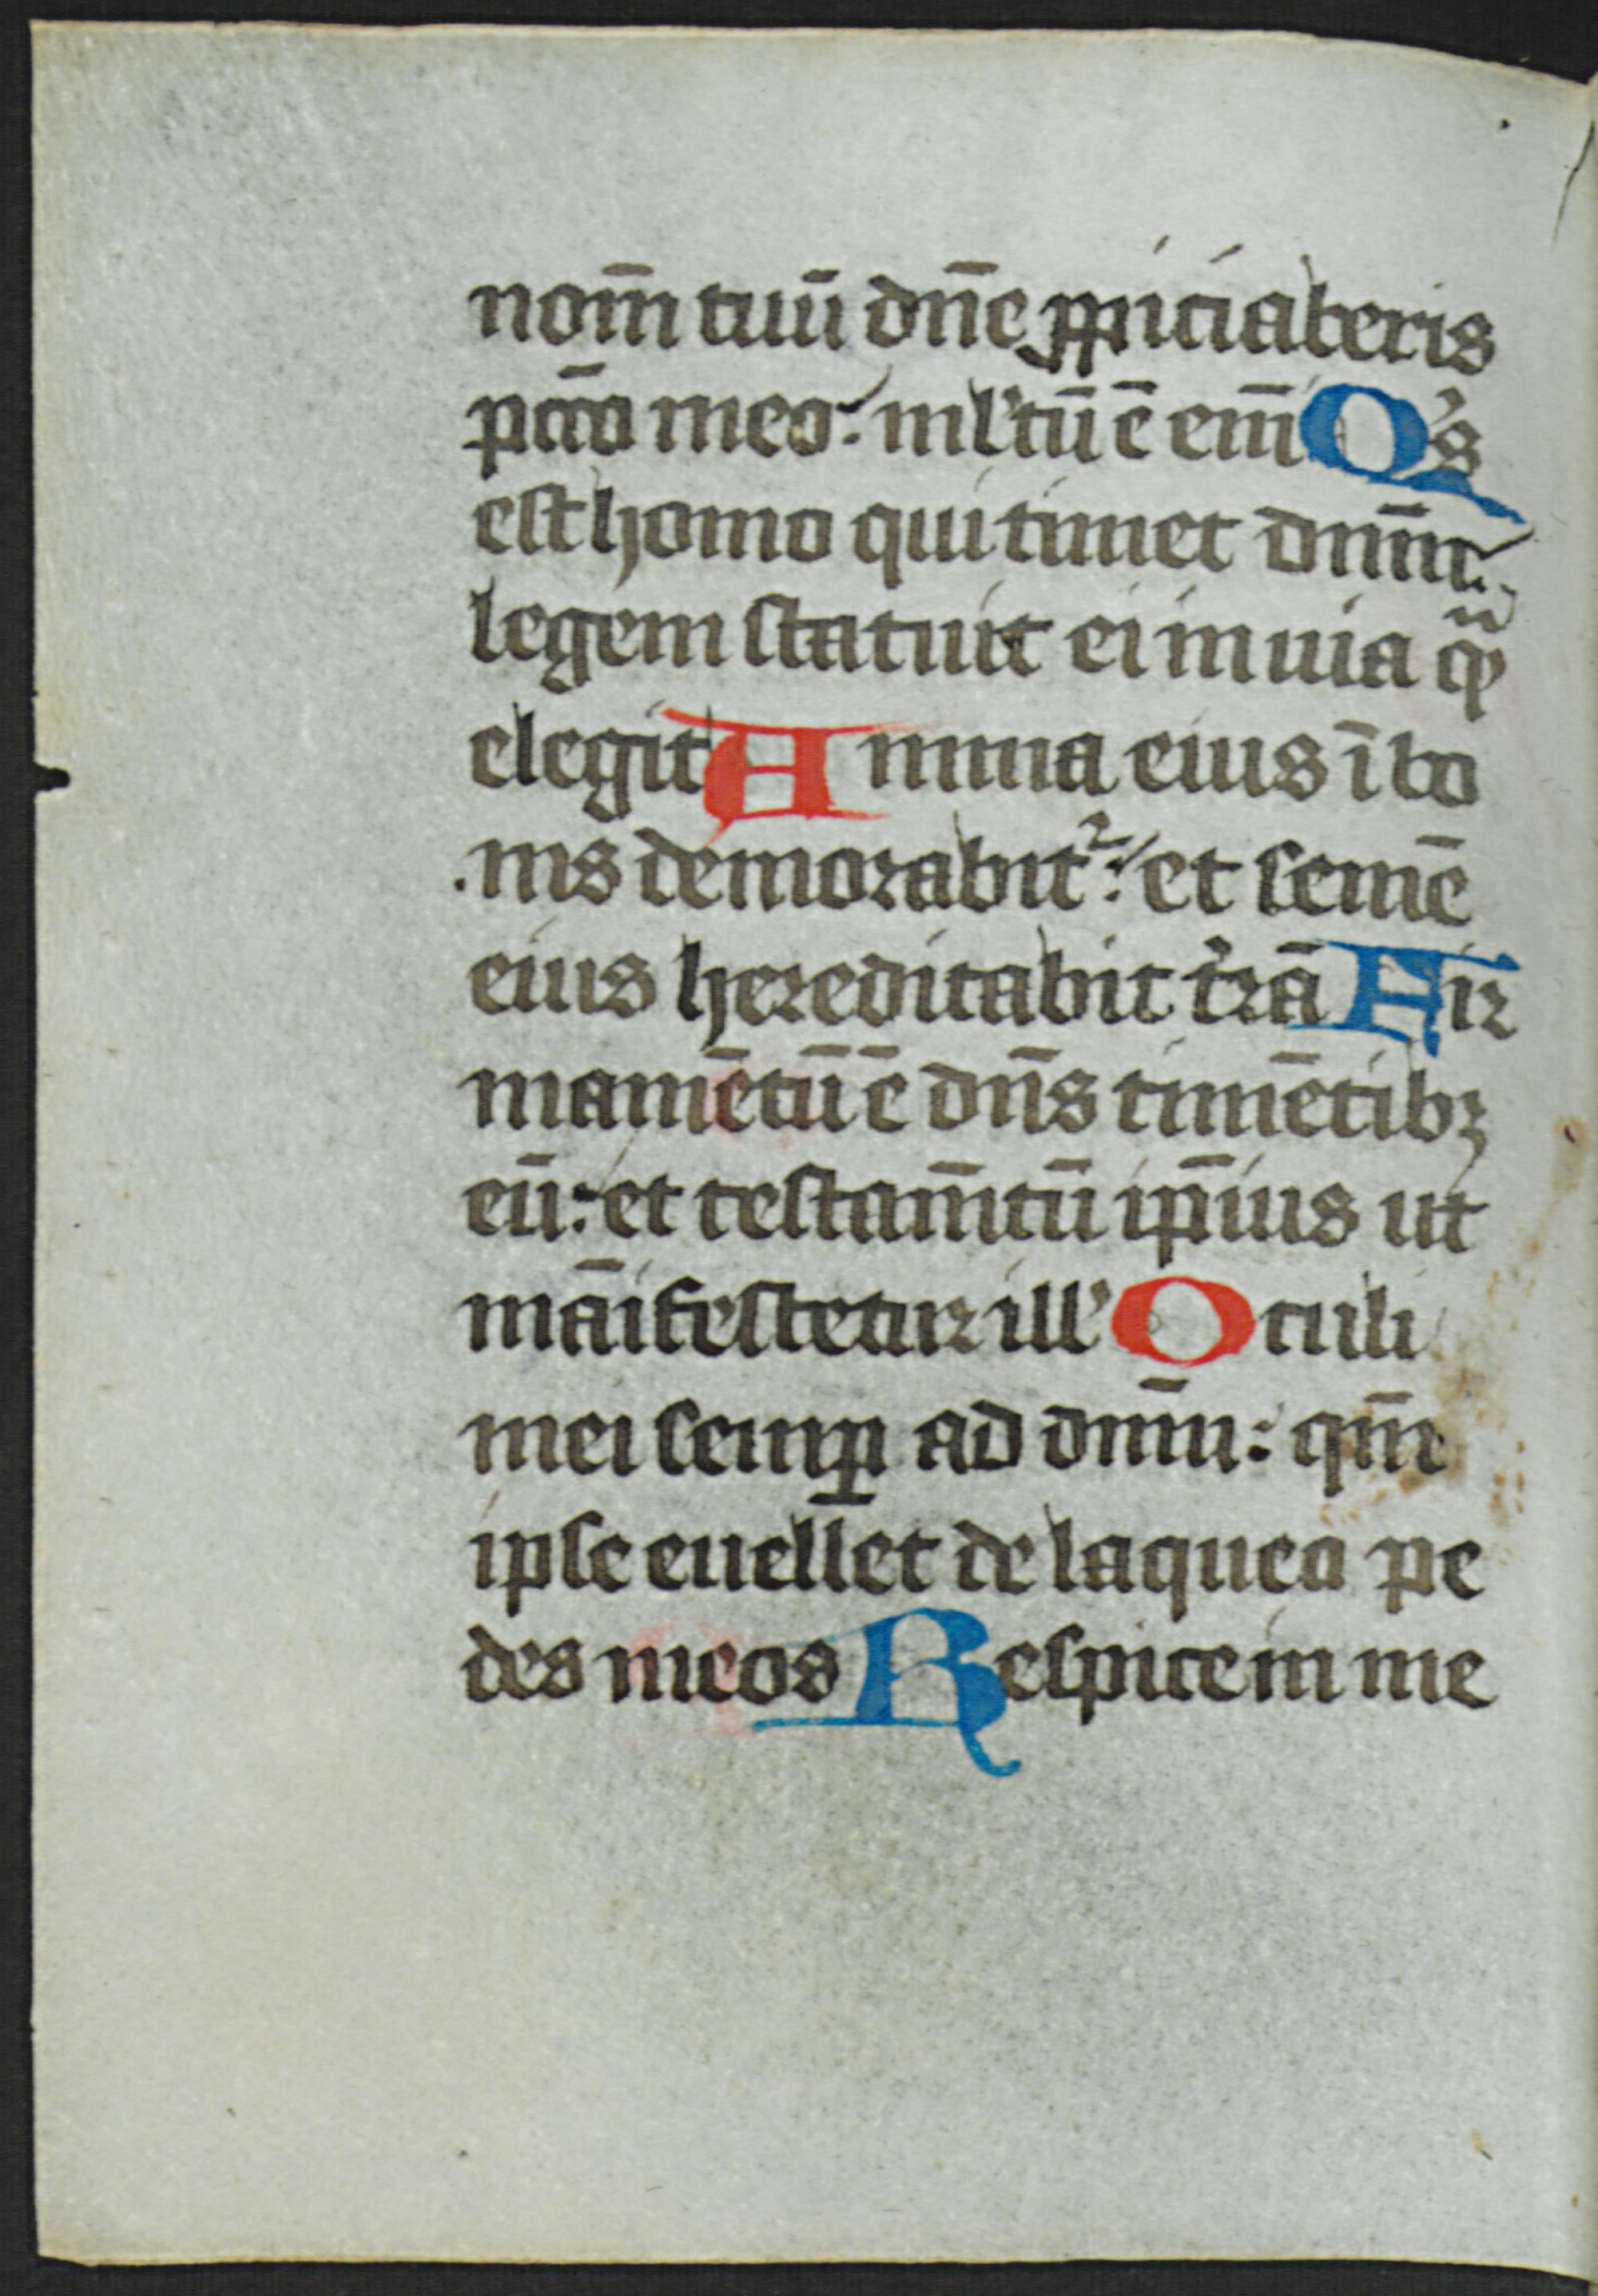 nom̄ tuū dn̄e ꝓpiciaberis
pctō meo: ml'tū ē em̄ Qis
est homo qui timet dnm̄
legem statuit ei in uia quā
elegit Anima eius ī bo
nis demorabit᷑: et semē
eius hereditabit t̓rā Fir
mamētū ē dn̄s timētibꝫ
eū: et testam̄tū ip̄ius ut
māifestetur ill' Oculi
mei semꝑ ad dnm̄: qm̄
ipse euellet de laqueo pe
des meos Respice in me